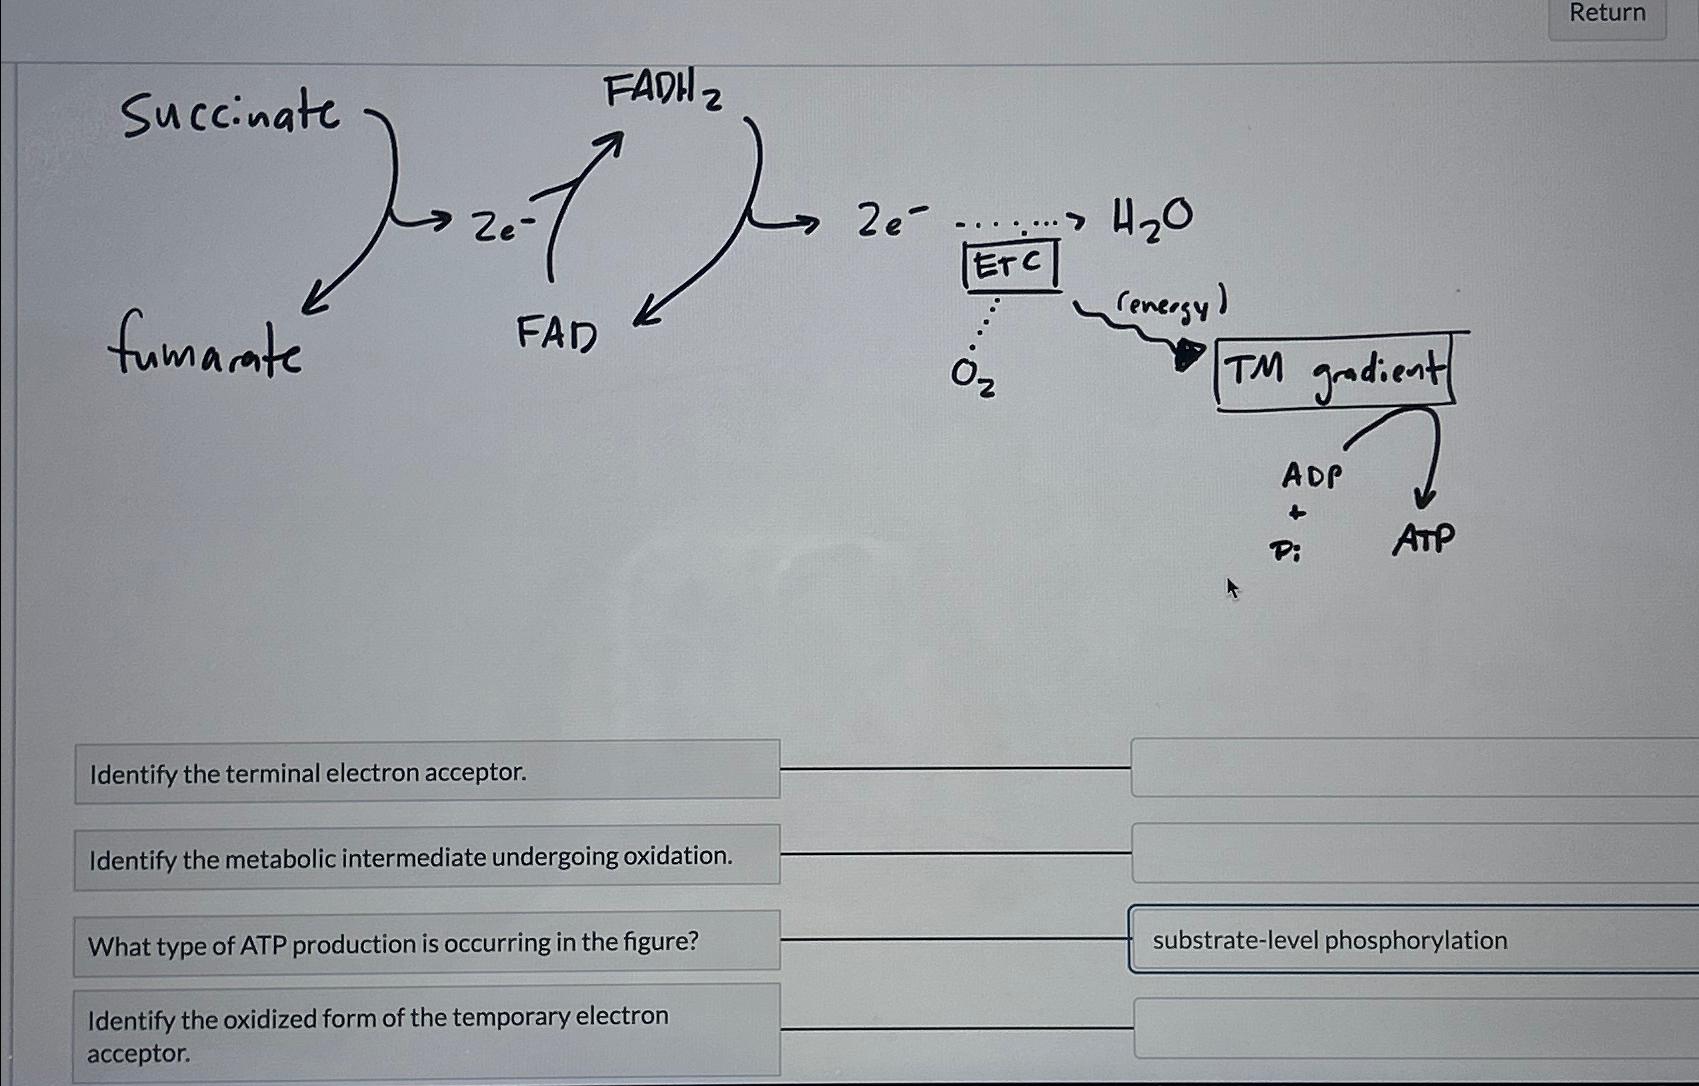 Return
Succinate
FADH2
2e-
2e-
H2O
ETC
(energy)
fumarate
FAD
O2
TM gradient
ADP
+
Pi
ATP
Identify the terminal electron acceptor.
Identify the metabolic intermediate undergoing oxidation.
What type of ATP production is occurring in the figure?
substrate-level phosphorylation
Identify the oxidized form of the temporary electron
acceptor.